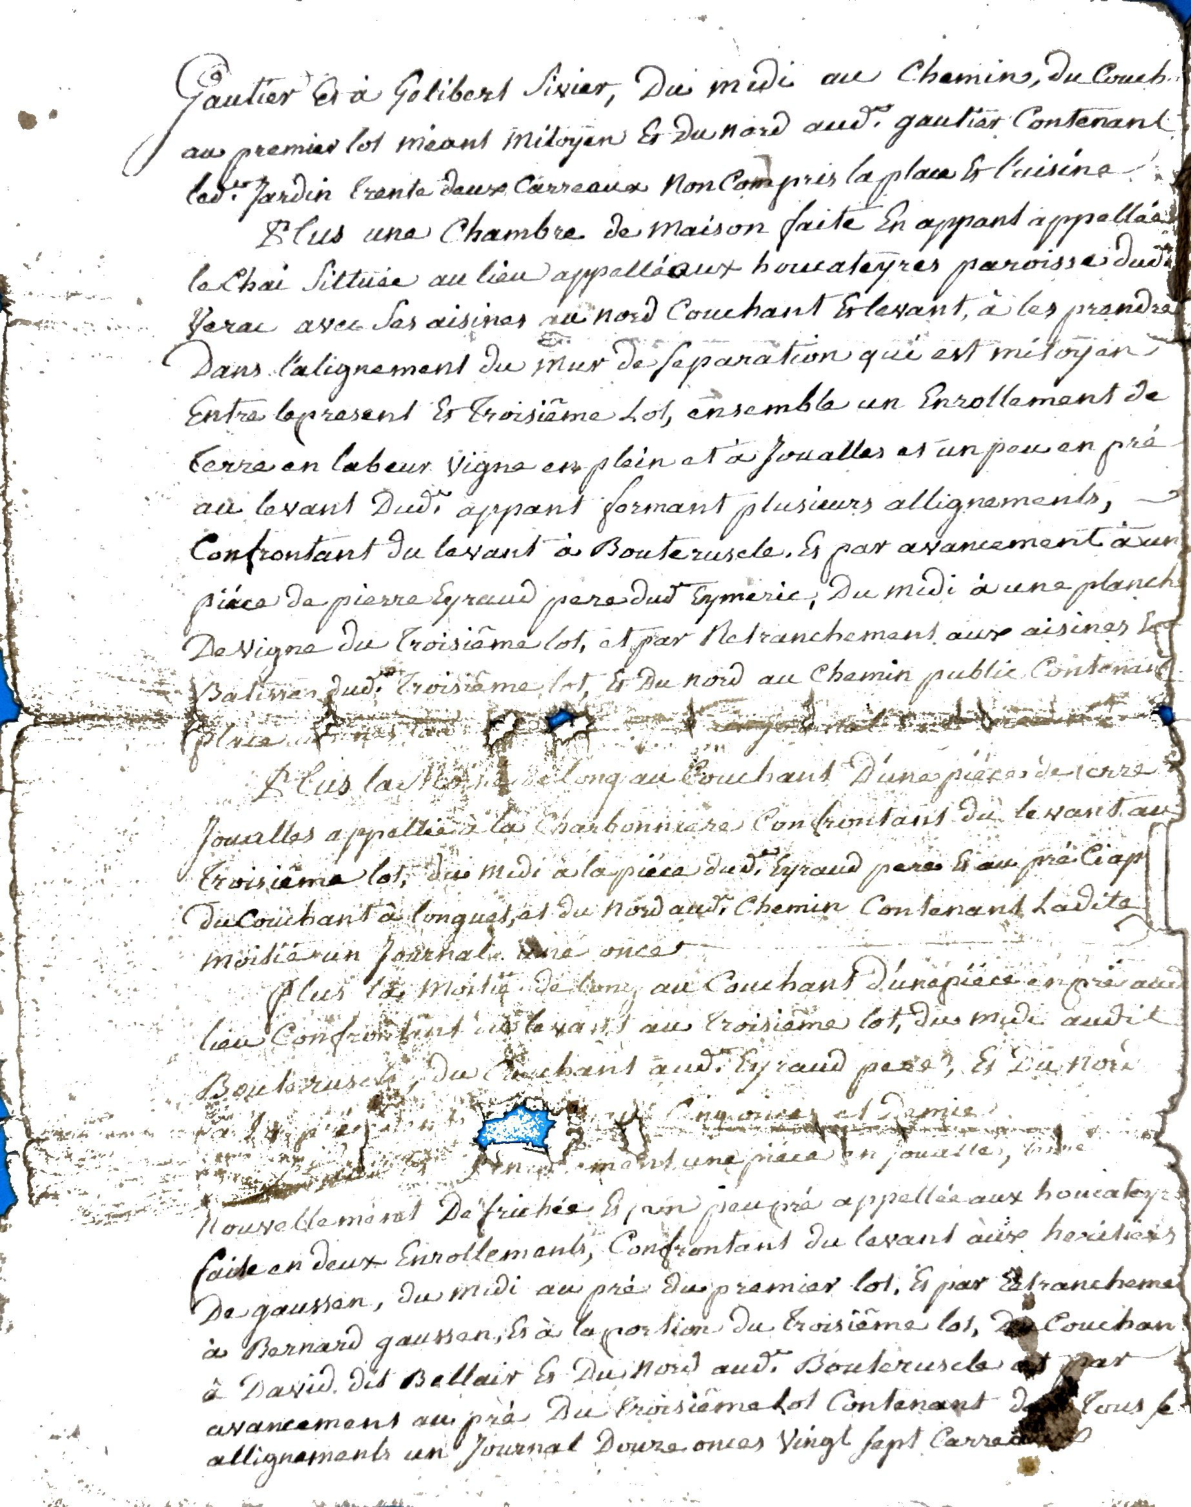 Gautier Et à Gelibert Sivier, Du midi au Chemin, du Couch
au premier lot méant mitoyen Et Du nord aud.t gautier Contenant
led.t Jardin trente deux Carreaux non Compris la place Et l'aisine
Plus une Chambre de maison faite En appant appellée
le Chai Sittuée au lieu appellé aux houcateyres paroisse dud.t
Verac avec Ses aisines au nord Couchant Et levant, à les prendre
Dans l'alignement du mur de separation qui est mitoyen
Entre le present Et troisiême Lot, ensemble un Enrollement de
terre en labeur vigne en plein et à Joualles et un peu en pré
au levant Dud.t appant formant plusieurs allignements,
Confrontant du levant à Bouteruscle. Et par avancement à un
piéce de pierre Eyraud pere dud.t Eymeric, Du midi à une planch
De vigne du troisiême lot, et par Retranchement aux aisines Et
Batisses dud.t troisiême lot, Et Du nord au Chemin public Contenant
place
Plus la Moitié de long au Couchant D'une piéce de terre
Joualles appellée à la Charbonniere Confrontant du levant au
troisiême lot, du midi à la piéce dud.t Eyraud pere Et au pré Ciap
du Couchant à longuet, et du nord aud.t Chemin Contenant Ladite
moitié un Journal une once
Plus la Moitié de long au Couchant d'une piéce en pré aud
lieu Confrontant du levant au troisiême lot, du midi audit
Bouteruscle, du Couchant aud.t Eyraud pere, Et Du nord
à la Cinq onces et Demie
une piéce en joualle, terre
nouvellement Défrichée Et un peu pré appellée aux houcateyres
faite en deux Enrollements, Confrontant du levant aux heritiers
De gaussen, du midi au pré du premier lot, Et par Retrancheme
à Bernard gaussen, Et à la portion du troisiême lot, Du Couchan
à David dit Bellair Et Du Nord aud.t Bouteruscle et par
avancement au pré Du troisiême Lot Contenant tous se
allignements un Journal Douze onces Vingt sept Carreaux